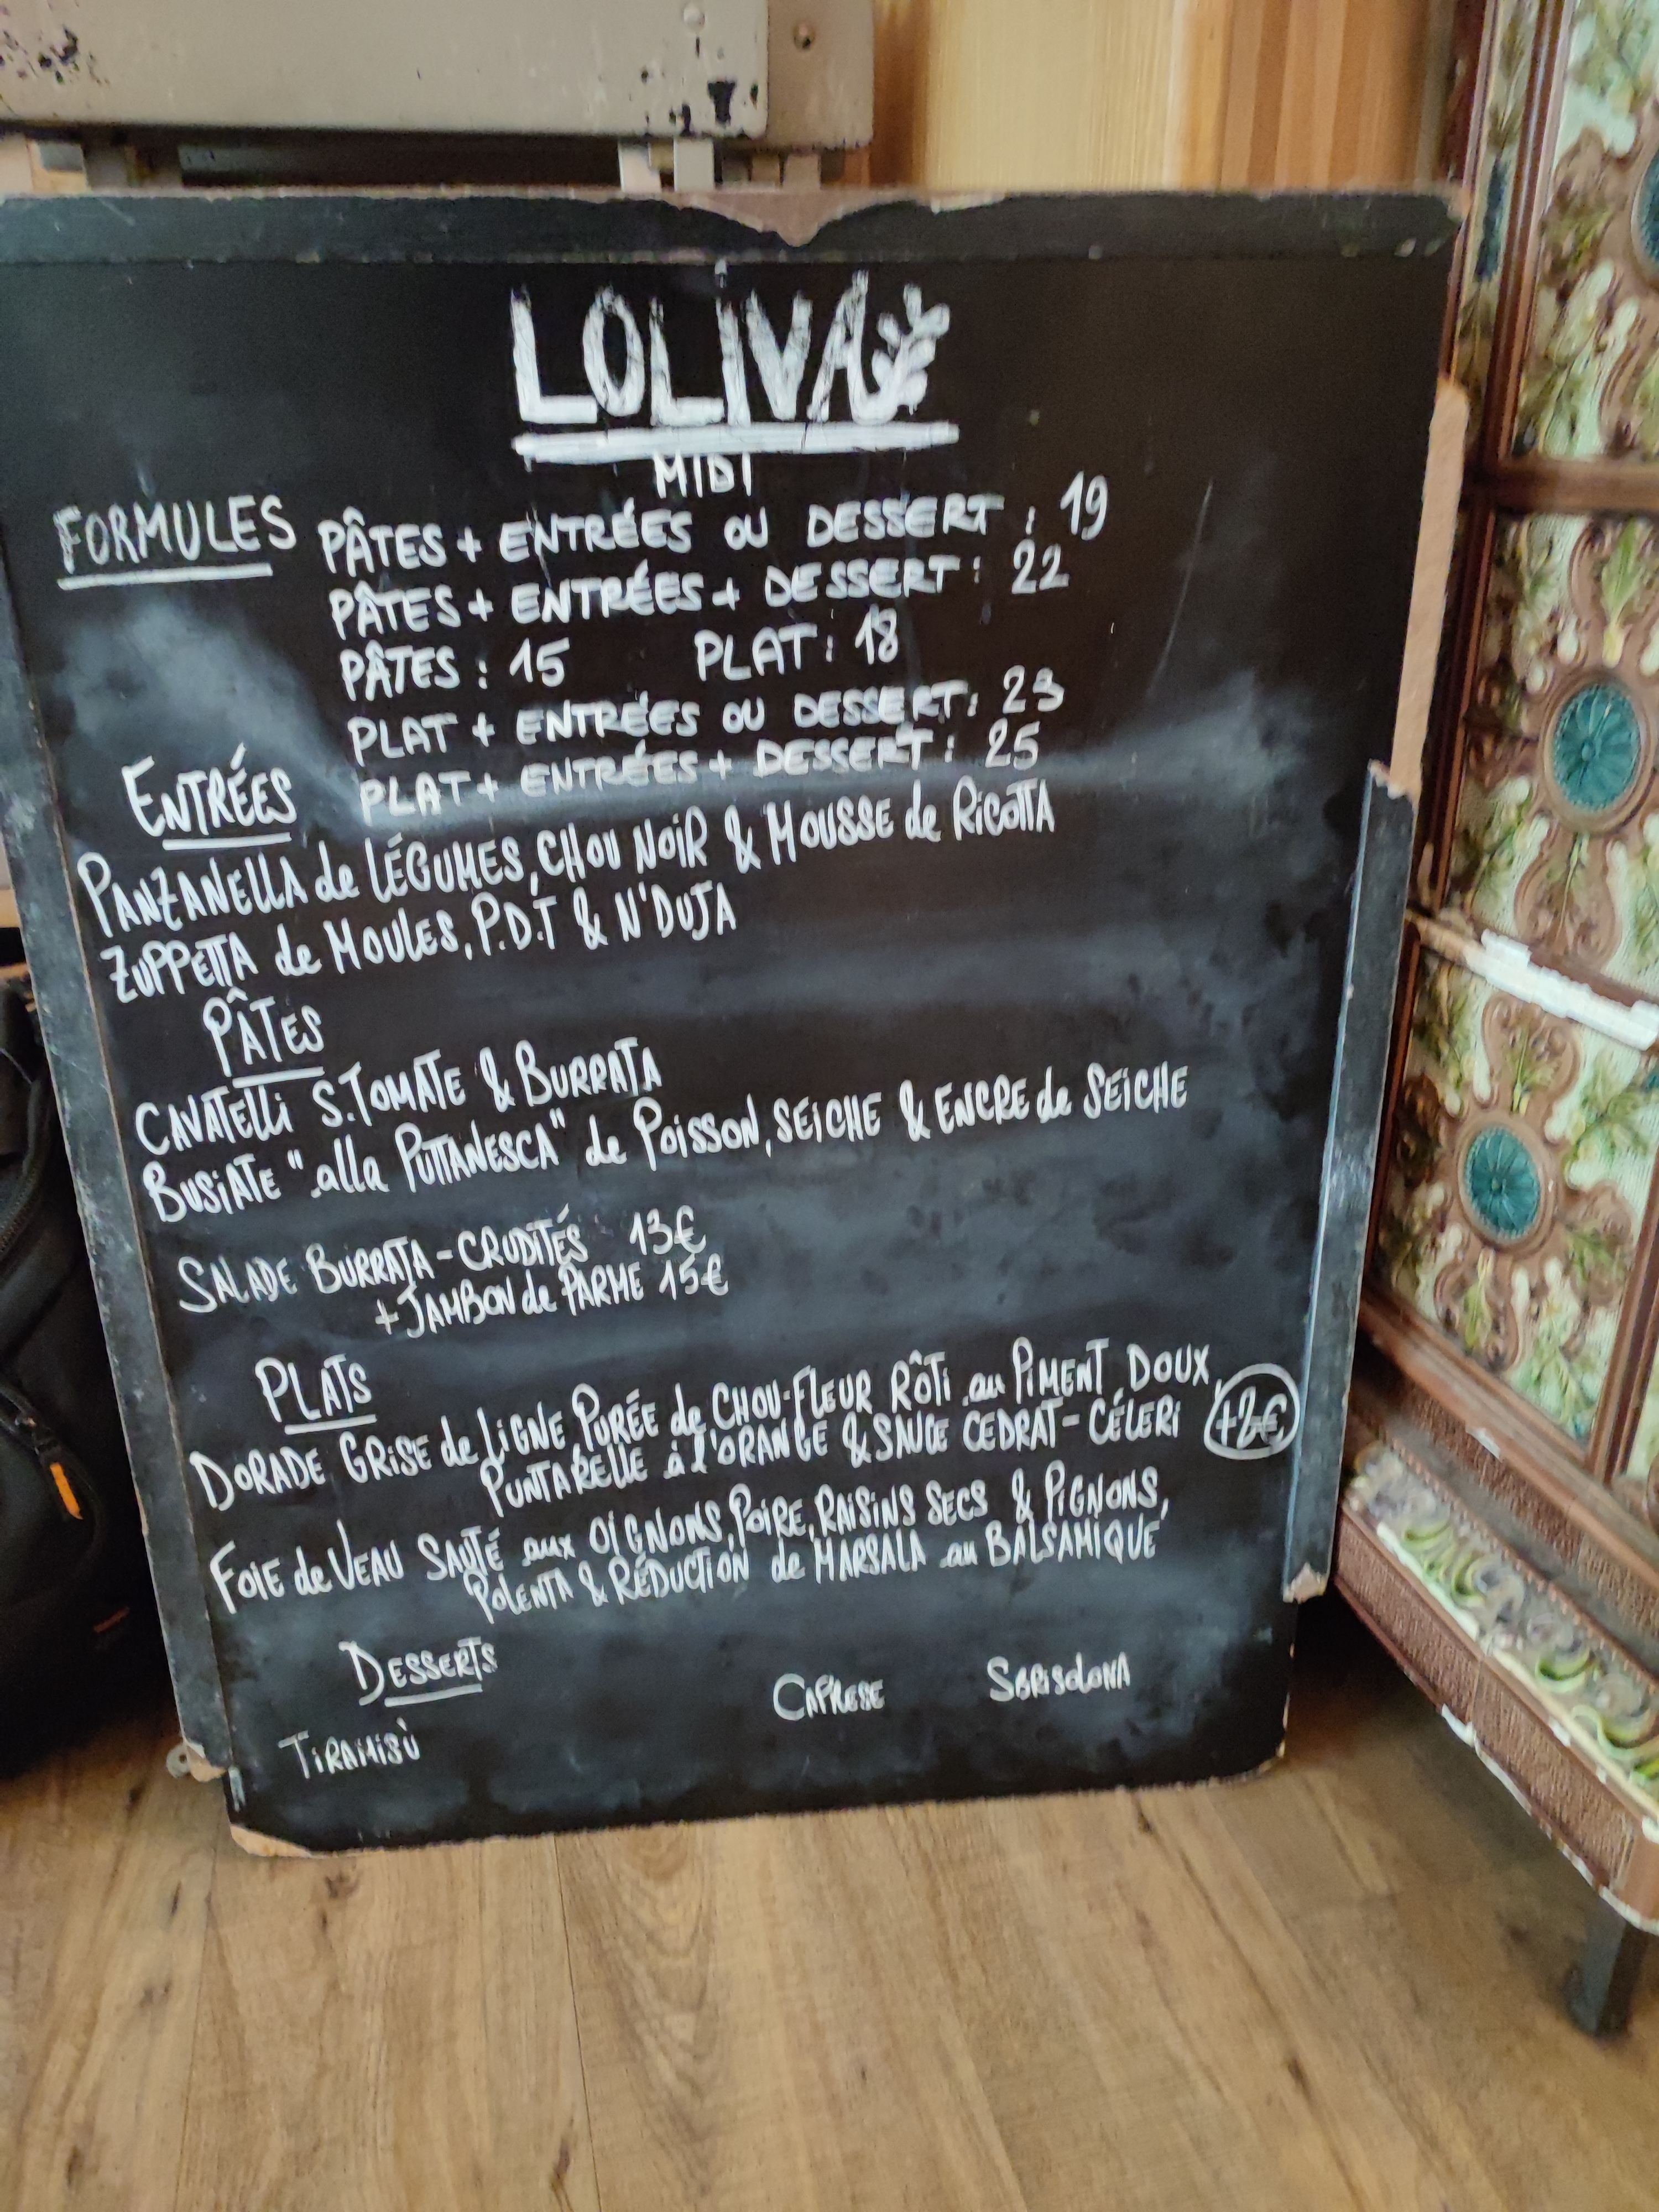 LOLIVA
MIDI
FORMULES
PÂTES + ENTRÉES OU DESSERT : 19
PÂTES + ENTRÉES + DESSERT : 22
PÂTES : 15 PLAT : 18
PLAT + ENTRÉES OU DESSERT : 23
PLAT + ENTRÉES + DESSERT : 25
ENTRÉES
PANZANELLA de LÉGUMES, CHOU NOIR & MOUSSE de RICOTTA
ZUPPETTA de MOULES, P.D.T & N'DUJA
PÂTES
CAVATELLI S.TOMATE & BURRATA
BUSIATE "alla PUTTANESCA" de POISSON, SEICHE & ENCRE de SEICHE
SALADE BURRATA-CRUDITÉS 13€
+ JAMBON de PARME 15€
PLATS
DORADE GRISE de LIGNE PURÉE de CHOU-FLEUR RÔTI au PIMENT DOUX,
PUNTARELLE à l'ORANGE & SAUCE CEDRAT-CÉLERI +2€
FOIE de VEAU SAUTÉ aux OIGNONS, POIRE, RAISINS SECS & PIGNONS,
POLENTA & RÉDUCTION de MARSALA au BALSAMIQUE
DESSERTS
TIRAMISÙ CAPRESE SBRISOLONA